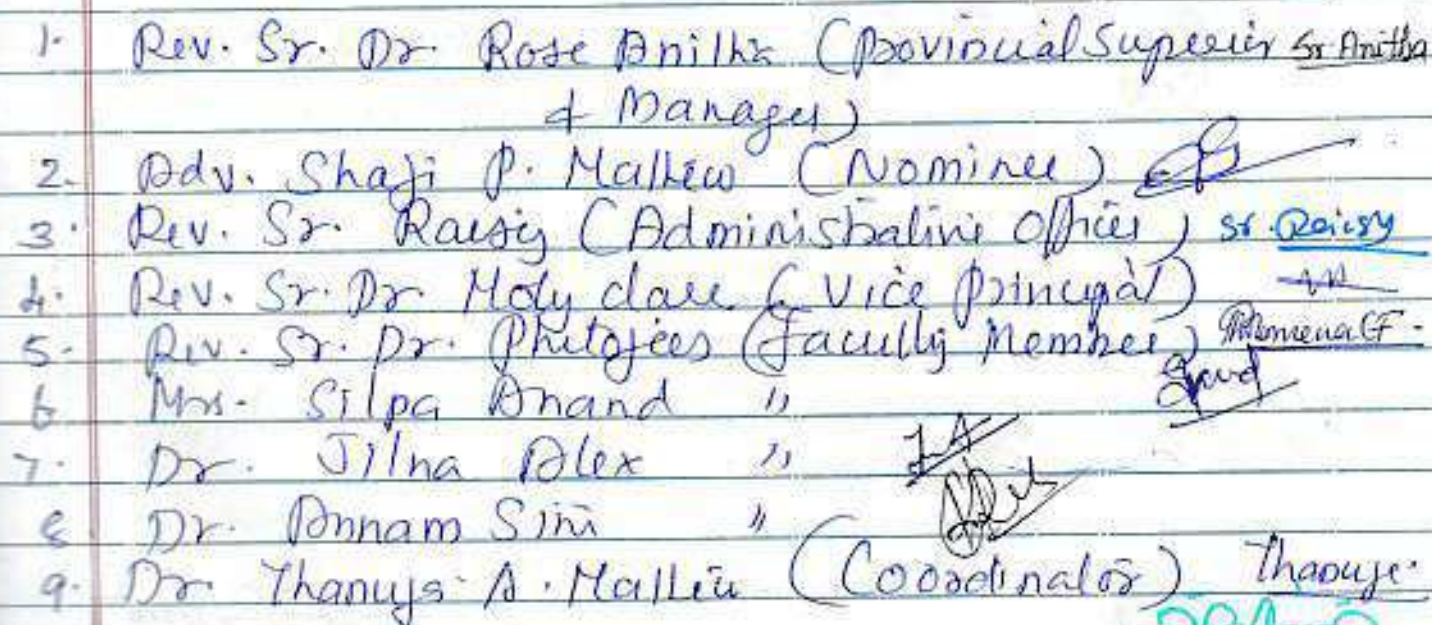 1. Rev. Sr. Dr. Rose Anitha (Provincial Superior Sr Anitha
& Manager)
2. Adv. Shaji P. Mathew (Nominee)
3. Rev. Sr. Raisy (Administrative Officer) Sr. Raicy
4. Rev. Sr. Dr. Moly Clare (Vice Principal)
5. Rev. Sr. Dr. Philojees (Faculty Member)
6 Mrs. Silpa Anand "
7. Dr. Jilna Alex " JA
8 Dr. Annam Sini "
9. Dr. Thanuja A. Mathew (Coordinator) Thanuja.